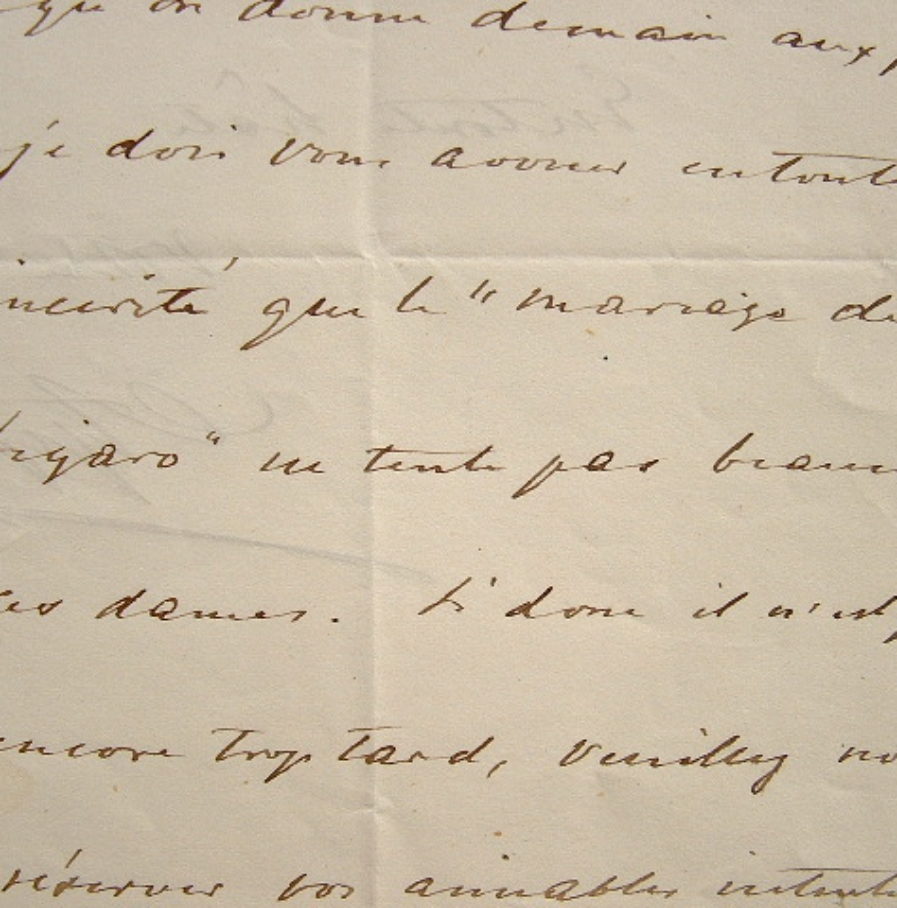 qu'on donne demain aux
je dois vous avouer en toute
incérité que le "mariage de
figaro" ne tente pas beauc
es dames. Si donc il n'est
encore trop tard, veuillez no
réserver vos aimables intent